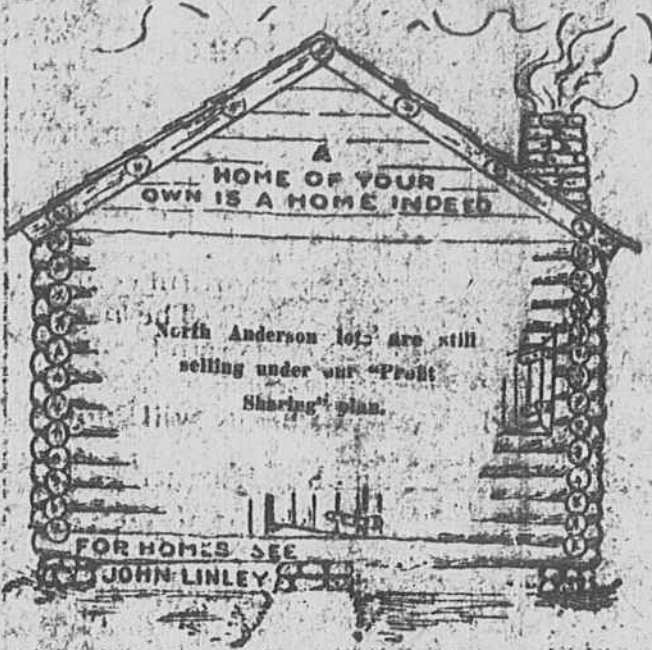 A
HOME OF YOUR
OWN IS A HOME INDEED
North Anderson lots are still
selling under our "Profit
Sharing" plan.
FOR HOMES SEE
JOHN LINLEY